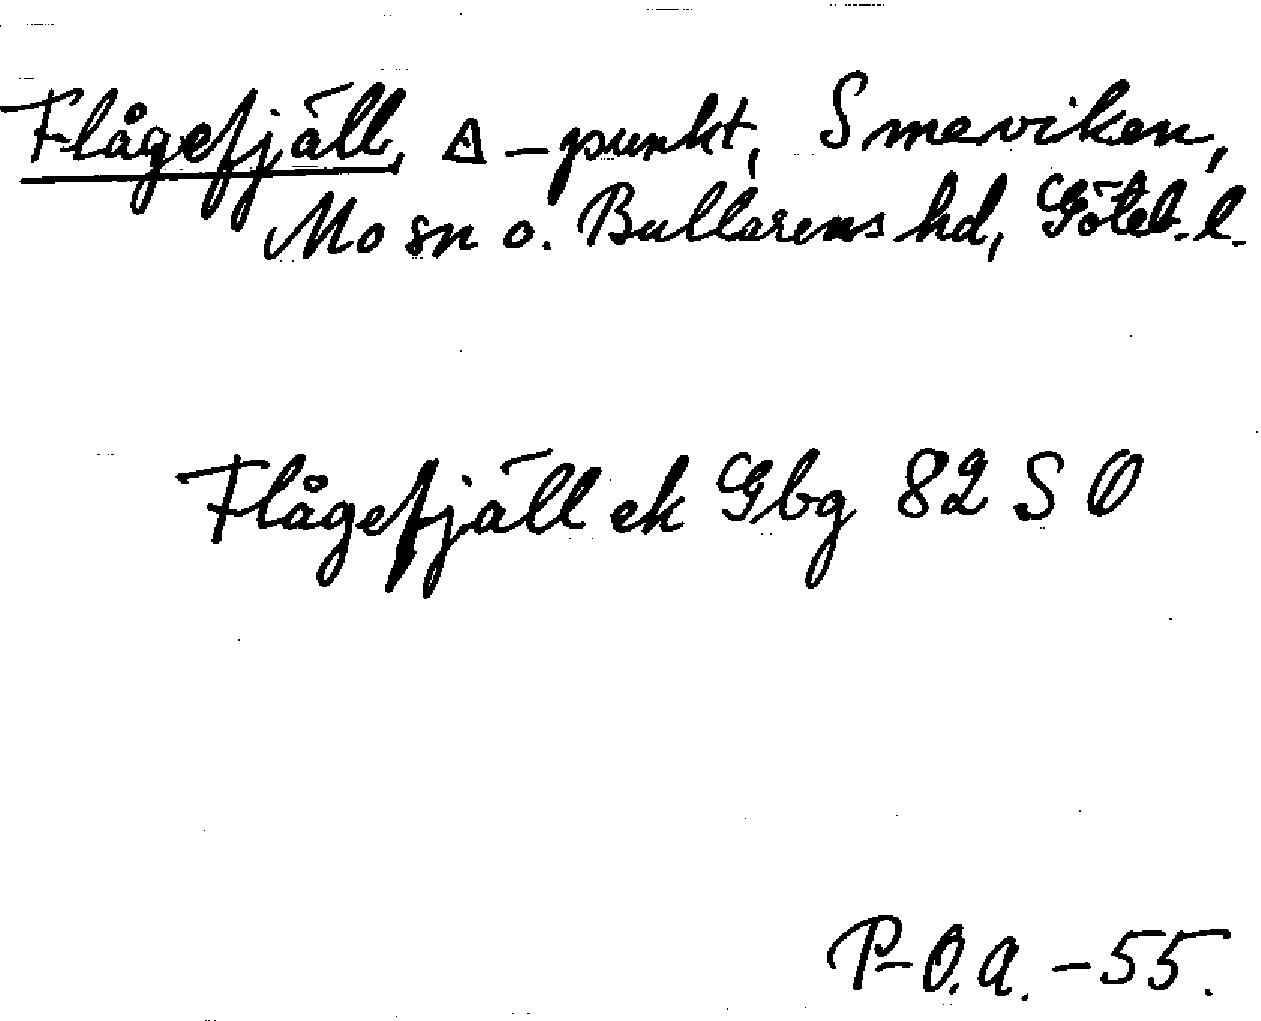 Flågefjäll, Δ-punkt, Smeviken,
Mo sn o. Bullarens hd, Göteb. l.
Flågefjäll ek Gbg 82 S O
P-O.A. -55.